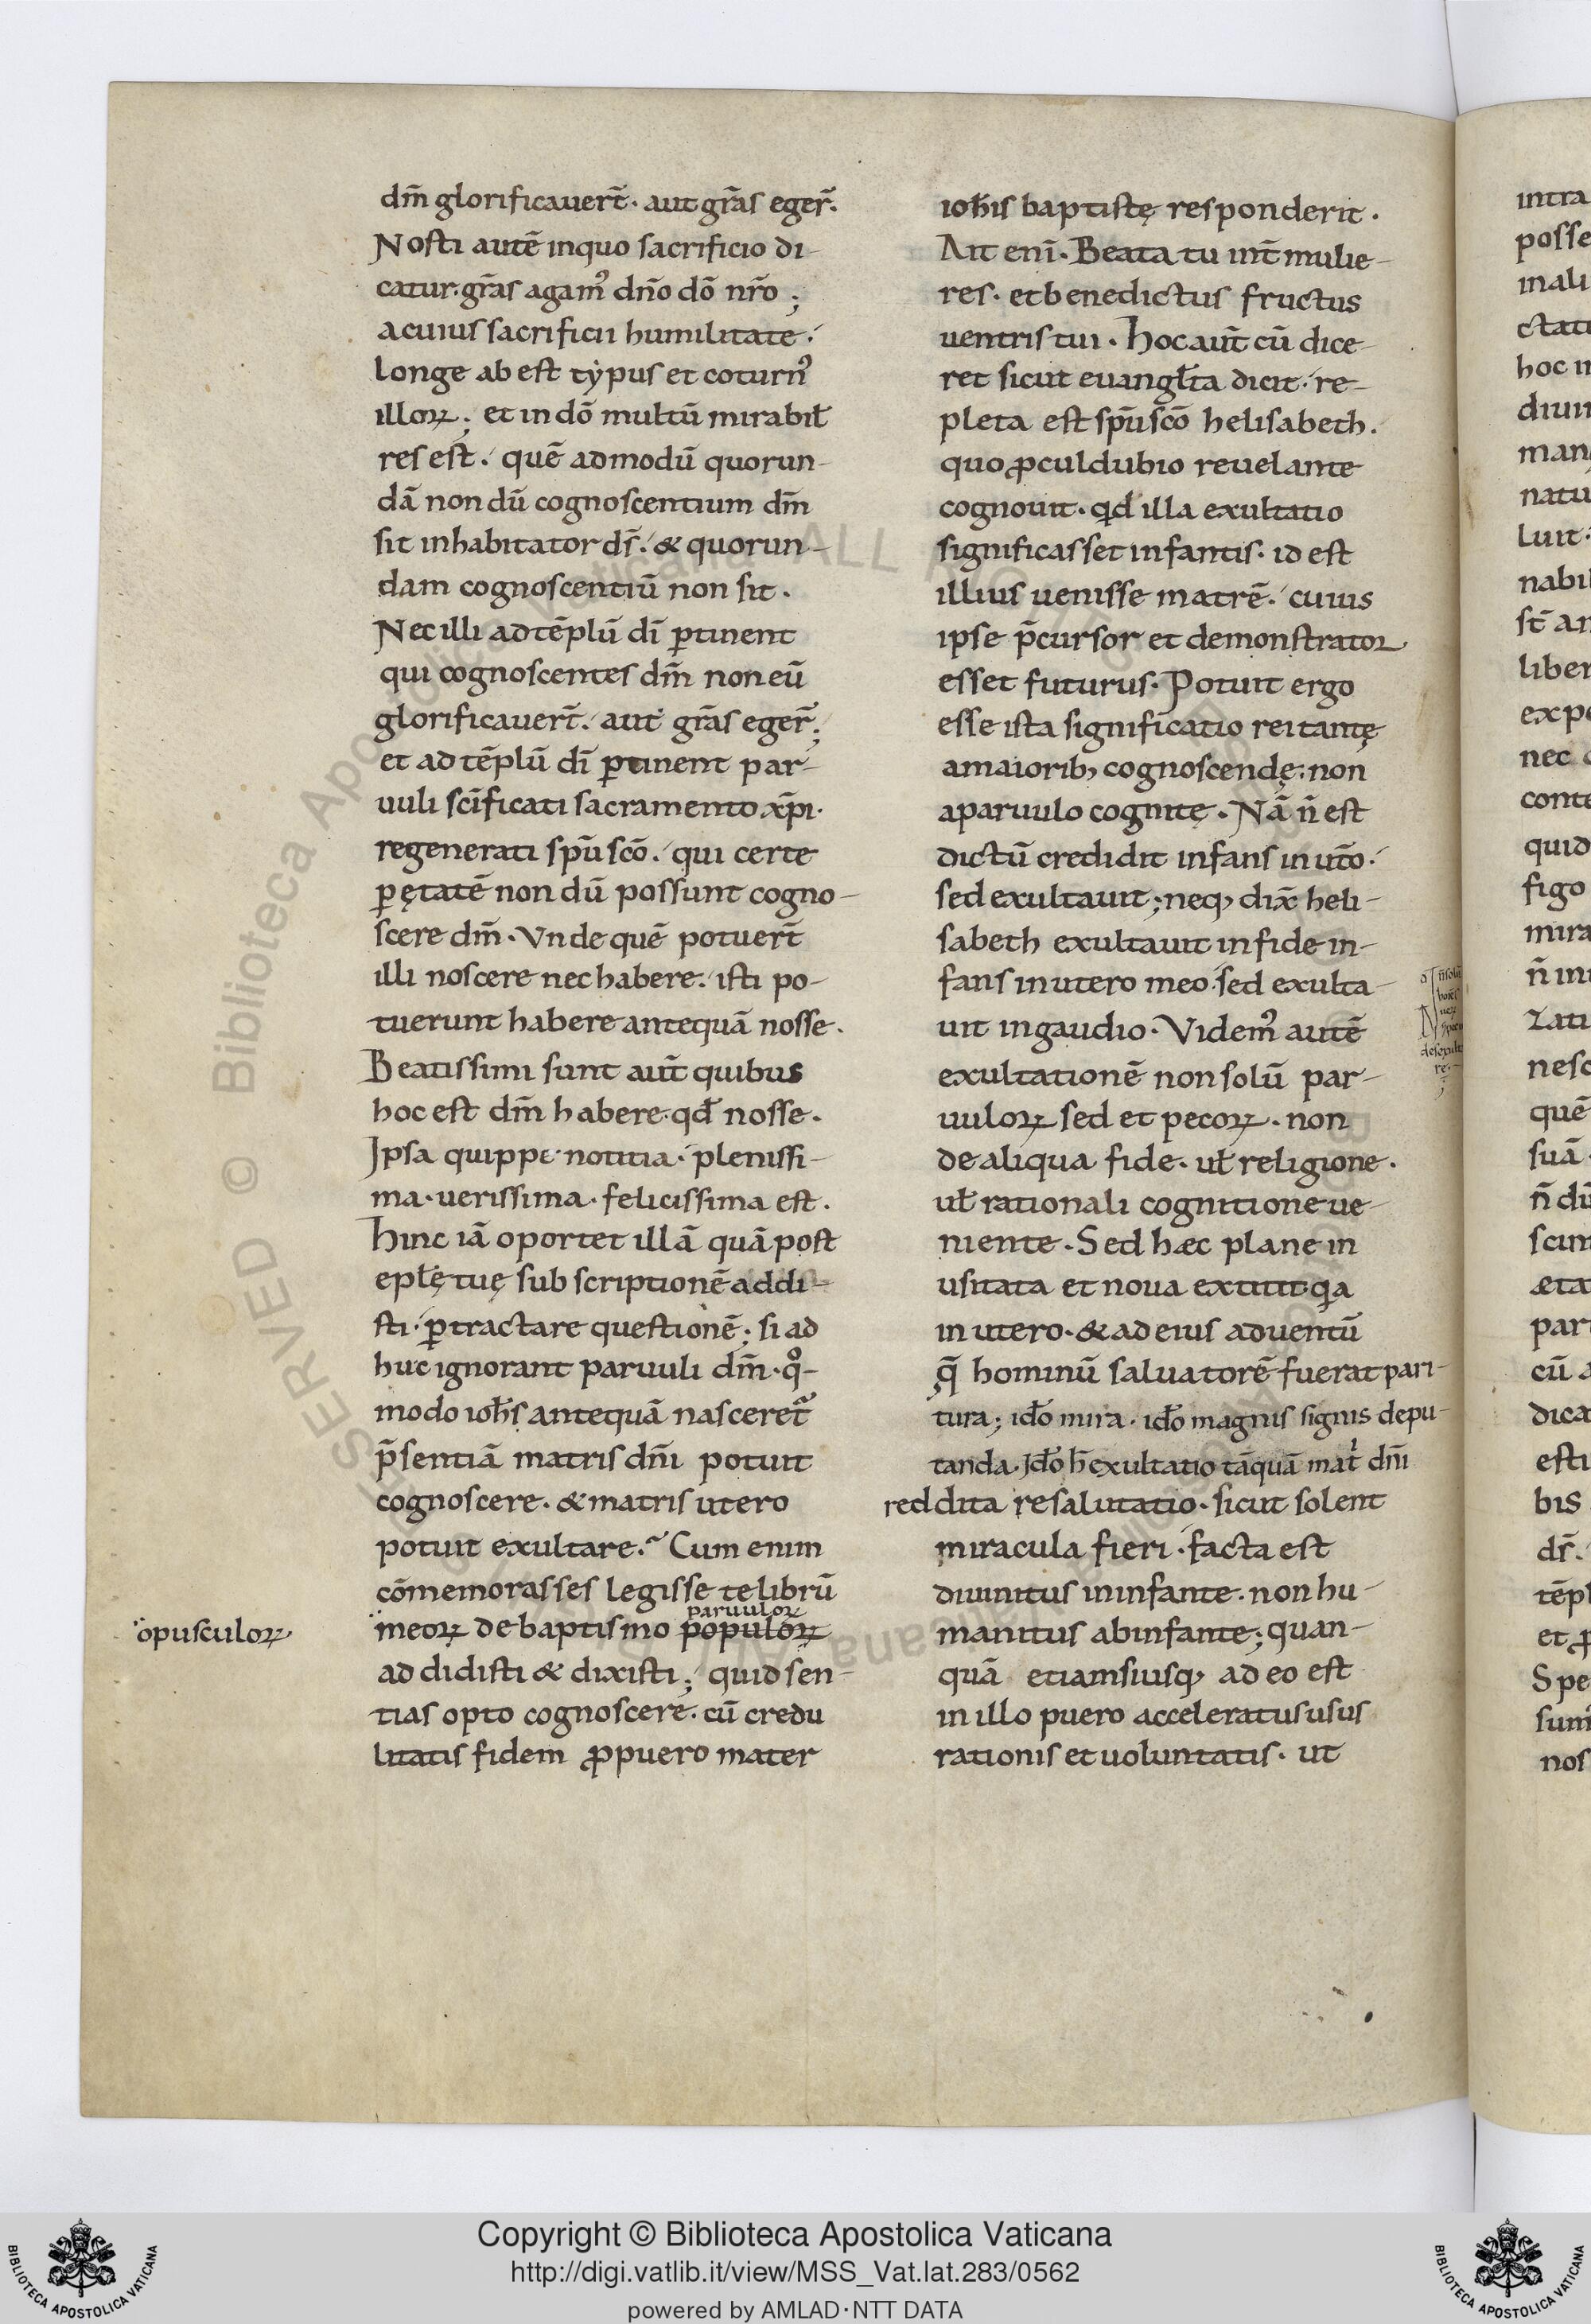 dm̄ glorificauert̄· aut gr̄as eger̄·
Nosti autē inquo sacrificio di-
catur· gr̄as agam᾽ dn̄o dō nr̄o ;
acuius sacrificii humilitate·
longe ab est ty̆pus et coturn᾽
illoꝝ ; et in dō multū mirabił
res est· quē ad modū quorun-
dā non dū cognoscentium dm̄
sit inhabitator ds̄· & quorun-
dam cognoscentiū non sit ·
Nec illi ad tēplū dī ꝑtinent
qui cognoscentes dm̄ non eū
glorificauert̄· aut gr̄as eger̄ ;
et ad tēplū dī ꝑtinent par-
uuli scīficati sacramento xp̄i·
regenerati sp̄u scō· qui certe
ꝑ ętatē non dū possunt cogno-
scere dm̄· Vnde quē potuert̄
illi noscere nec habere· isti po-
tuerunt habere antequā nosse·
Beatissimi sunt aut̄ quibus
hoc est dm̄ habere· qd̄ nosse·
Ipsa quippe notitia· plenissi-
ma· uerissima· felicissima est·
Hinc iā oportet illā quā post
epłę tuę sub scriptionē addi-
sti· ꝑtractare questionē ; si ad
huc ignorant paruuli dm̄· qͦ-
modo ioħs antequā nasceret᷑
p̄sentiā matris dn̄i potuit
cognoscere· & matris utero
potuit exultare· Cum enim
cōmemorasses legisse te librū
paruuloꝝ
opusculoꝝ
meoꝝ de baptismo populoꝝ
ad didisti & dixisti ; quid sen-
tias opto cognoscere· cū credu
litatis fidem ꝓ puero mater
ioħis baptistę responderit·
Ait enī· Beata tu int̄ mulie-
res· et benedictus fructus
uentris tui· Hoc aut̄ cū dice-
ret sicut euangłta dicit· re-
pleta est sp̄u scō helisabeth·
quo ꝓcul dubio reuelante
cognouit· qd̄ illa exultatio
significasset infantis· id est
illius uenisse matrē· cuius
ipse p̄cursor et demonstrator
esset futurus· Potuit ergo
esse ista significatio rei tantę
amaiorib; cognoscendę· non
aparuulo cognitę· Nā n̄ est
dictū credidit infans in ut̄o·
sed exultauit ; neq; dix̄ heli-
sabeth exultauit in fide in-
fans in utero meo· sed exulta-
uit in gaudio· Videm᾽ autē
exultationē non solū par-
uuloꝝ sed et pecoꝝ· non
de aliqua fide· uł religione·
uł rationali cognitione ue-
niente· Sed hæc plane in
usitata et noua extitit qa
in utero· & ad eius aduentū
q̄ hominū saluatorē fuerat pari-
tura ; iđo mira· iđo magnis signis depu-
tanda· Iđo h̄ exultatio tāquā mat̄ dn̄i
reddita resalutatio· sicut solent
miracula fieri· facta est
diuinitus in infante· non hu-
manitus ab infante ; quan-
quā etiam si usq; ad eo est
in illo puero acceleratus usus
rationis et uoluntatis· ut
Copyright © Biblioteca Apostolica Vaticana
http://digi.vatlib.it/view/MSS_Vat.lat.283/0562
powered by AMLAD·NTT DATA